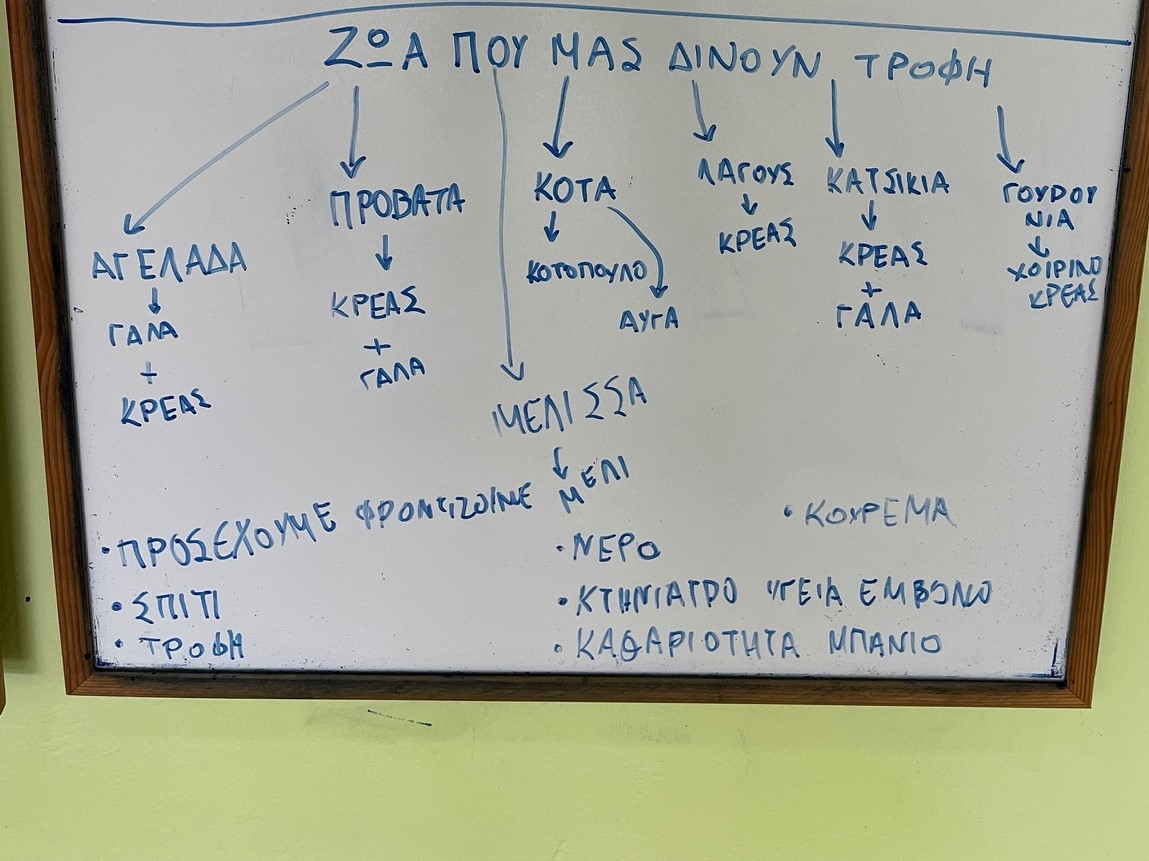 ΖΩΑ ΠΟΥ ΜΑΣ ΔΙΝΟΥΝ ΤΡΟΦΗ
ΑΓΕΛΑΔΑ
ΓΑΛΑ
+
ΚΡΕΑΣ
ΠΡΟΒΑΤΑ
ΚΡΕΑΣ
+
ΓΑΛΑ
ΜΕΛΙΣΣΑ
ΜΕΛΙ
ΚΟΤΑ
ΚΟΤΟΠΟΥΛΟ
ΑΥΓΑ
ΛΑΓΟΥΣ
ΚΡΕΑΣ
ΚΑΤΣΙΚΙΑ
ΚΡΕΑΣ
+
ΓΑΛΑ
ΓΟΥΡΟΥ
ΝΙΑ
ΧΟΙΡΙΝΟ
ΚΡΕΑΣ
• ΠΡΟΣΕΧΟΥΜΕ ΦΡΟΝΤΙΖΟΥΜΕ
• ΣΠΙΤΙ
• ΤΡΟΦΗ
• ΝΕΡΟ
• ΚΤΗΝΙΑΤΡΟ ΥΓΕΙΑ ΕΜΒΟΛΙΟ
• ΚΑΘΑΡΙΟΤΗΤΑ ΜΠΑΝΙΟ
• ΚΟΥΡΕΜΑ